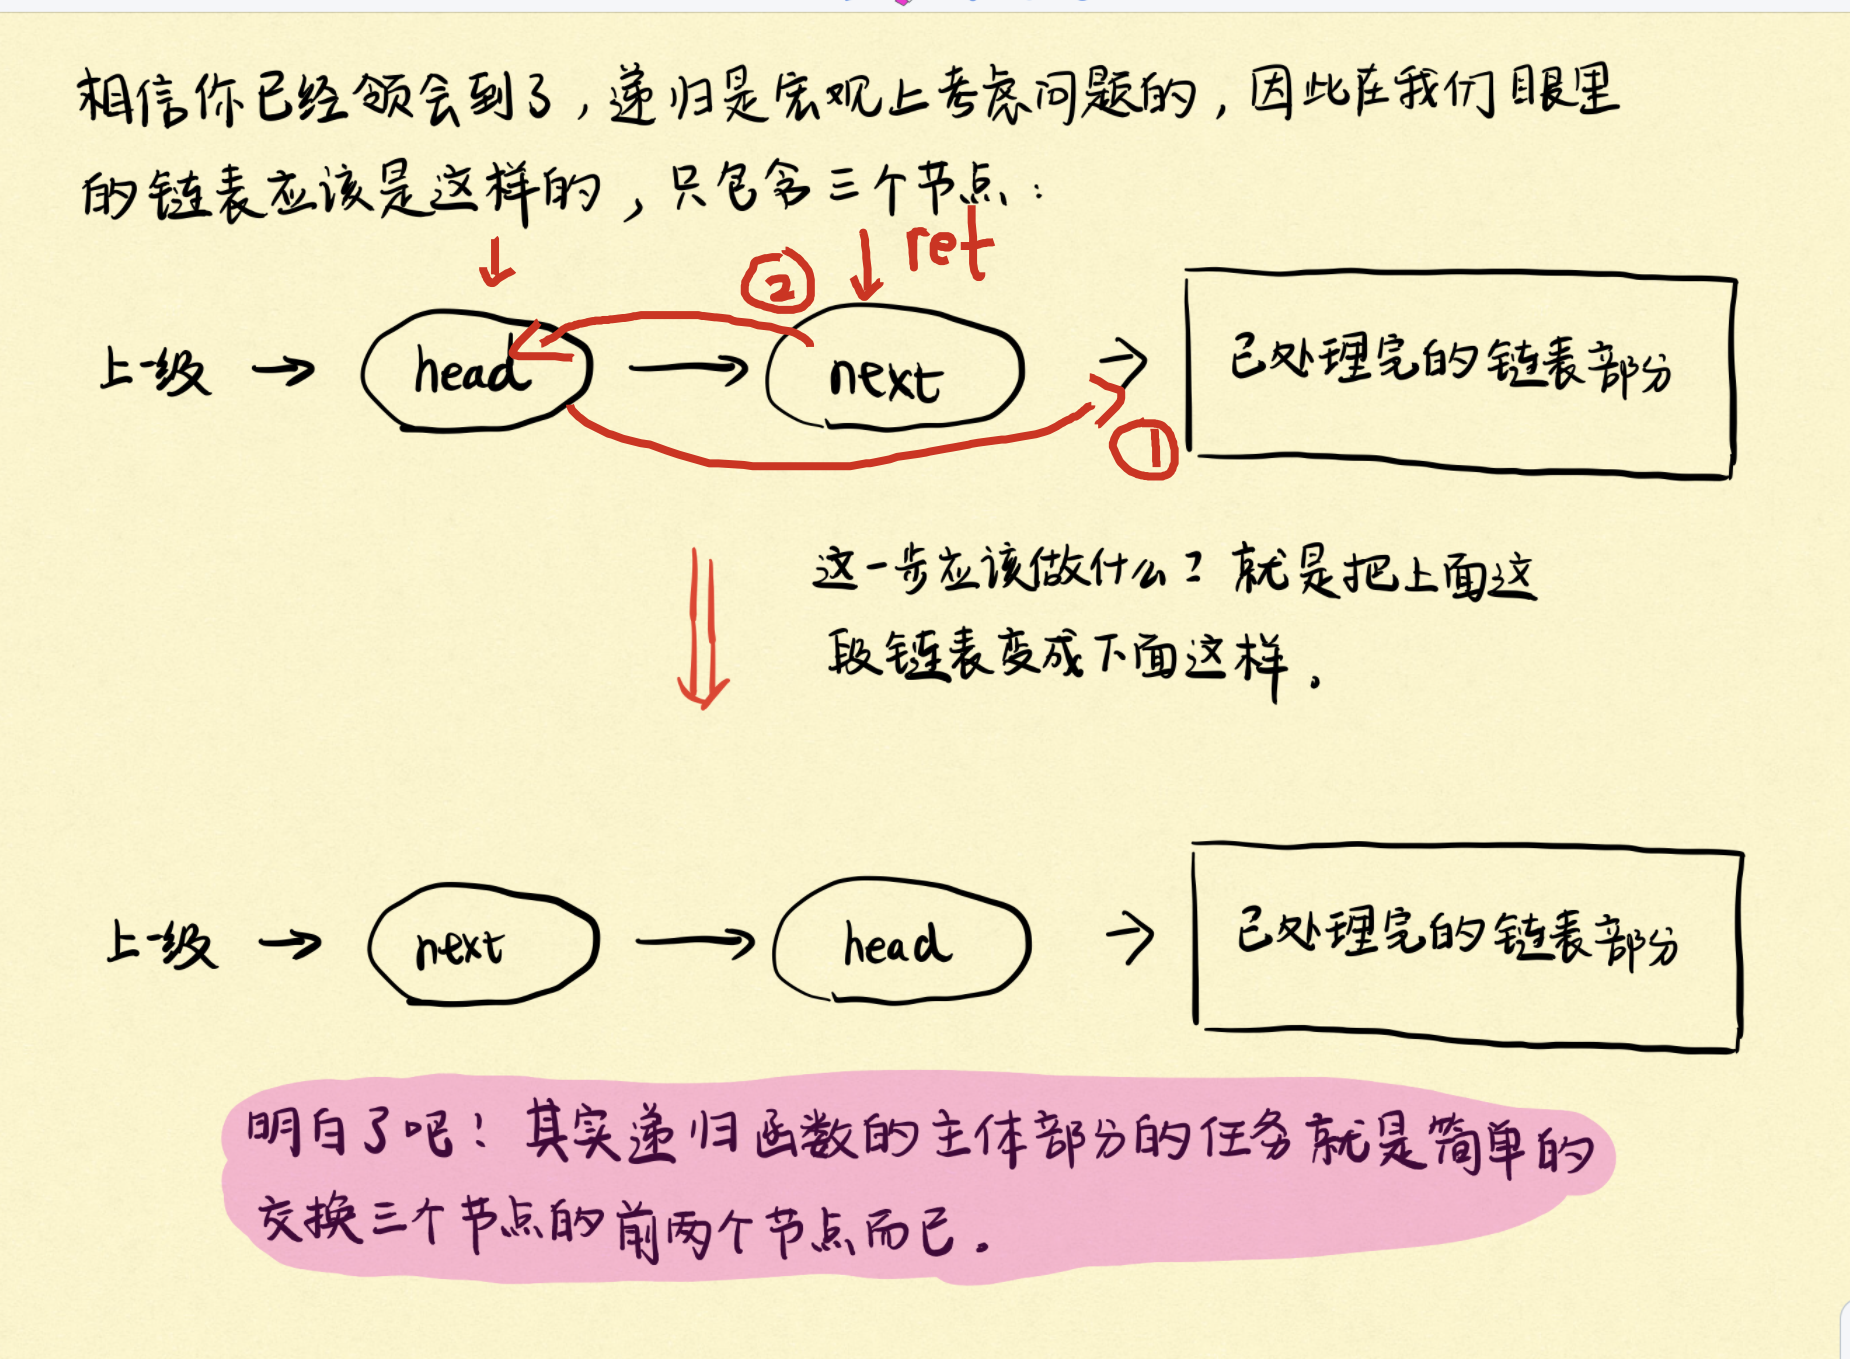 相信你已经领会到了,递归是宏观上考虑问题的,因此在我们眼里
的链表应该是这样的,只包含三个节点:
② ret
上一级 → head → next → 已处理完的链表部分
①
这一步应该做什么?就是把上面这
段链表变成下面这样。
上一级 → next → head → 已处理完的链表部分
明白了吧!其实递归函数的主体部分的任务就是简单的
交换三个节点的前两个节点而已。